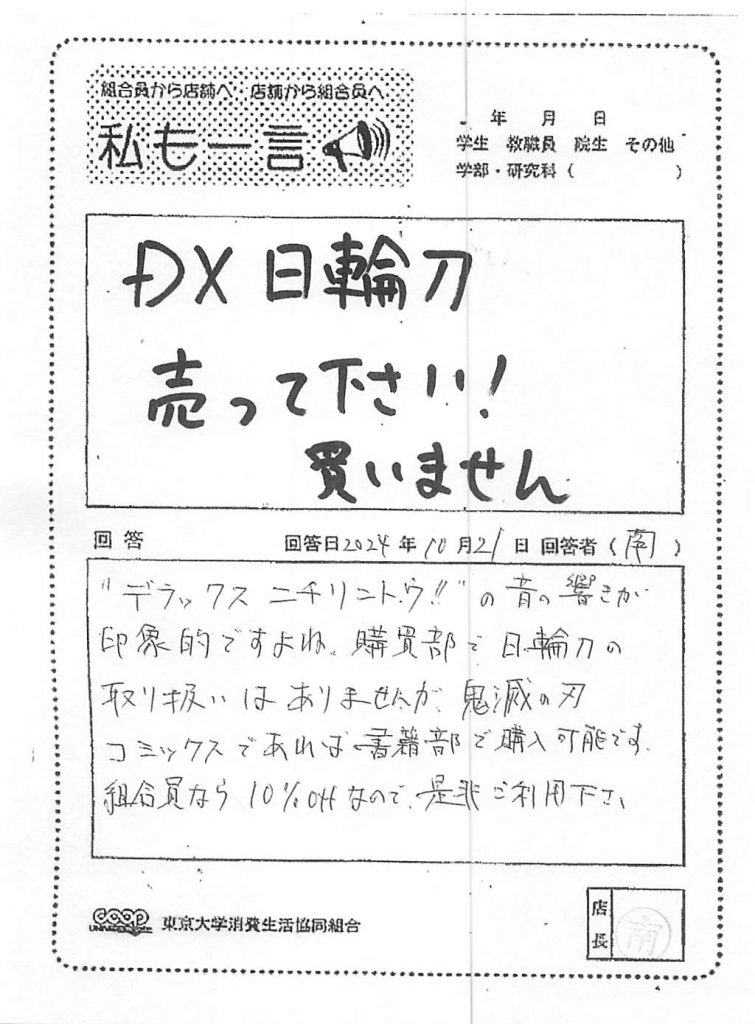 組合員から店舗へ 店舗から組合員へ
私も一言
年 月 日
学生 教職員 院生 その他
学部・研究科( )
DX 日輪刀
売って下さい!
買いません
回答 回答日2024年10月21日 回答者(南)
"デラックス ニチリントウ!!"の音の響きが
印象的ですよね。購買部で日輪刀の
取り扱いはありませんが、鬼滅の刃
コミックスであれば書籍部で購入可能です。
組合員なら10%offなので、是非ご利用下さい
coop 東京大学消費生活協同組合
店長 南